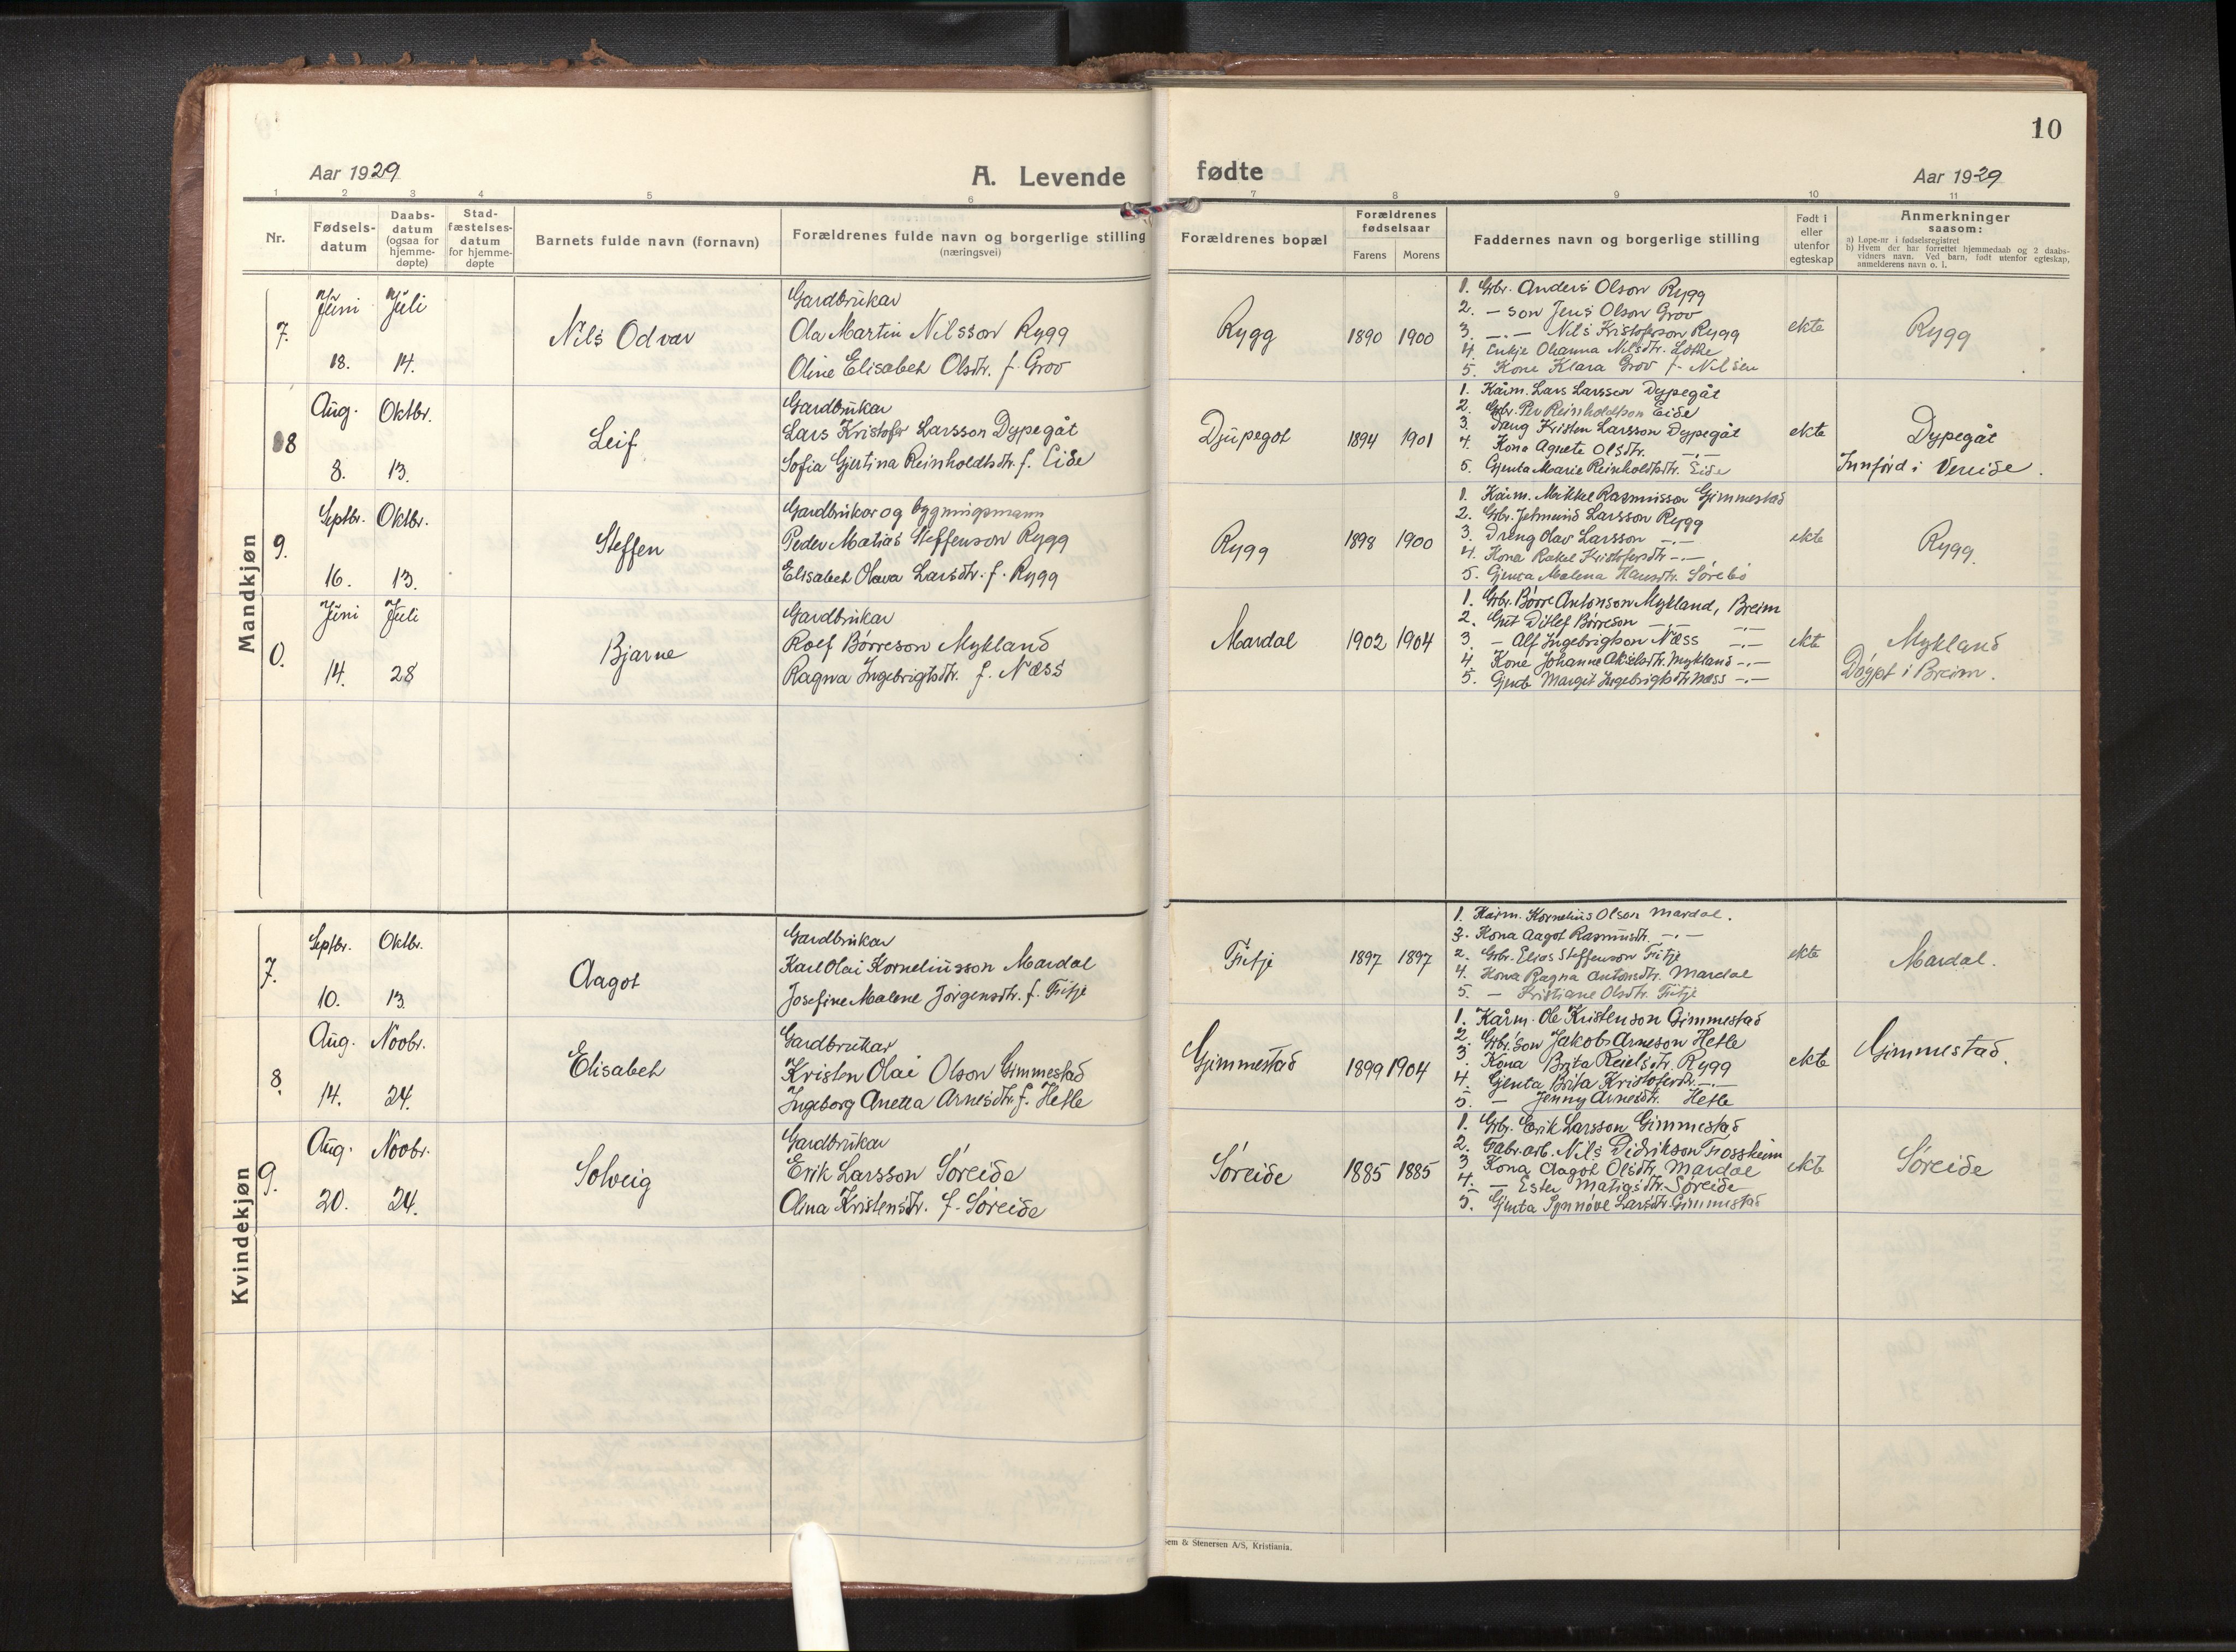 10
Aar 1929
A. Levende fødte
Aar 1929
1 2 3 4 5 6 7 8 9 10 11
Nr.
Fødsels-
datum
Daabs-
datum
(ogsaa for
hjemme-
døpte)
Stad-
fæstelses-
datum
for hjemme-
døpte
Barnets fulde navn (fornavn)
Forældrenes fulde navn og borgerlige stilling
(næringsvei)
Forældrenes bopæl
Forældrenes
fødselsaar
Farens Morens
Faddernes navn og borgerlige stilling
Født i
eller
utenfor
egteskap
Anmerkninger
saasom:
a) Løpe-nr i fødselsregistret
b) Hvem der har forrettet hjemmedaab og 2 daabs-
vidners navn. Ved barn, født utenfor egteskap,
anmelderens navn o. l.
Mandkjøn
7.
Juni
18.
Juli
14.
Nils Odvar
Gardbrukar
Ola Martin Nilsson Rygg
Oline Elisabeh Olsdtr. f. Grov
Rygg
1890 1900
1. Gbr. Anders Olson Rygg
2. - son Jens Olson Grov
3. -.- Nils Kristoferson Rygg
4. Enkje Ohanna Nilsdtr. Lotke
5. Kone Klara Grov f. Nilsen
ekte
Rygg
8
Aug.
8.
Oktbr.
13.
Leif
Gardbrukar
Lars Kristofer Larsson Dypegåt
Sofia Gjertina Reinholdtsdtr. f. Eide
Djupegot
1894 1901
1. Kårm. Lars Larsson Dypegåt
2. Gbr. Per Reinholdtson Eide
3. Dreng Kristen Larsson Dypegåt
4. Kona Agnete Olsdtr. -.-
5. Gjenta Marie Reinholdtsdtr. Eide
ekte
Dypegåt
Innførd i Vereide.
9.
Septbr.
16.
Oktbr.
13.
Steffen
Gardbrukar og bygningsmann
Peder Matias Steffenson Rygg
Elisabeh Olava Larsdtr. f. Rygg
Rygg
1898 1900
1. Kårm. Mikkel Rasmusson Gimmestad
2. Gbr. Jetmund Larsson Rygg
3. Dreng Olav Larsson -.-
4. Kona Rakel Kristofersdtr -.-
5. Gjenta Malena Hansdtr. Sørebø
ekte
Rygg.
0.
Juni
14.
Juli
28
Bjarne
Gardbrukar
Rolf Børreson Mykland
Ragna Ingebrigtsdtr. f. Næss
Mardal
1902 1904
1. Gbr. Børre Antonson Mykland, Breim
2. Gut Ditlef Børreson -.- -.-
3. - Alf Ingebrigtson Næss -.-
4. Kone Johanne Akselsdtr. Mykland -.-
5. Gjenta Margit Ingebrigtsdtr Næss -.-
ekte
Mykland
Døypt i Breim.
Kvindekjøn
7.
Septbr.
10.
Oktbr.
13.
Aagot
Gardbrukar
Karl Olai Korneliusson Mardal
Josefine Malene Jørgensdtr. f. Fitje
Fitje
1897 1897
1. Kårm. Kornelius Olson Mardal.
3. Kona Aagot Rasmusdtr. -.-
2. Gbr. Elias Steffenson Fitje
4. Kona Ragna Antonsdtr. Mardal
5. - Kristiane Olsdtr. Fitje
ekte
Mardal.
8.
Aug.
14.
Novbr.
24.
Elisabeh
Gardbrukar
Kristen Olai Olson Gimmestad
Ingeborg Anetta Arnesdtr. f. Hetle
Gjimmestad
1899 1904
1. Kårm. Ole Kristenson Gimmestad
2. Gbr. son Jakob Arneson Hetle
3. Kona Brita Reielsdtr. Rygg
4. Gjenta Brita Kristofersdtr. -.-
5. - Jenny Arnesdtr. Hetle
ekte
Gimmestad.
9.
Aug.
20.
Novbr.
24.
Solveig
Gardbrukar
Erik Larsson Søreide
Alma Kristensdtr. f. Søreide
Søreide
1885 1885
1. Gbr. Erik Larsson Gimmestad
2. Fabr.arb. Nils Didrikson Fossheim
3 Kona Aagot Olsdtr. Mardal
4. - Ester Matiasdtr. Søreide
5. Gjenta Synnøve Larsdtr. Gimmestad
ekte
Søreide
em & Stenersen A/S, Kristiania.